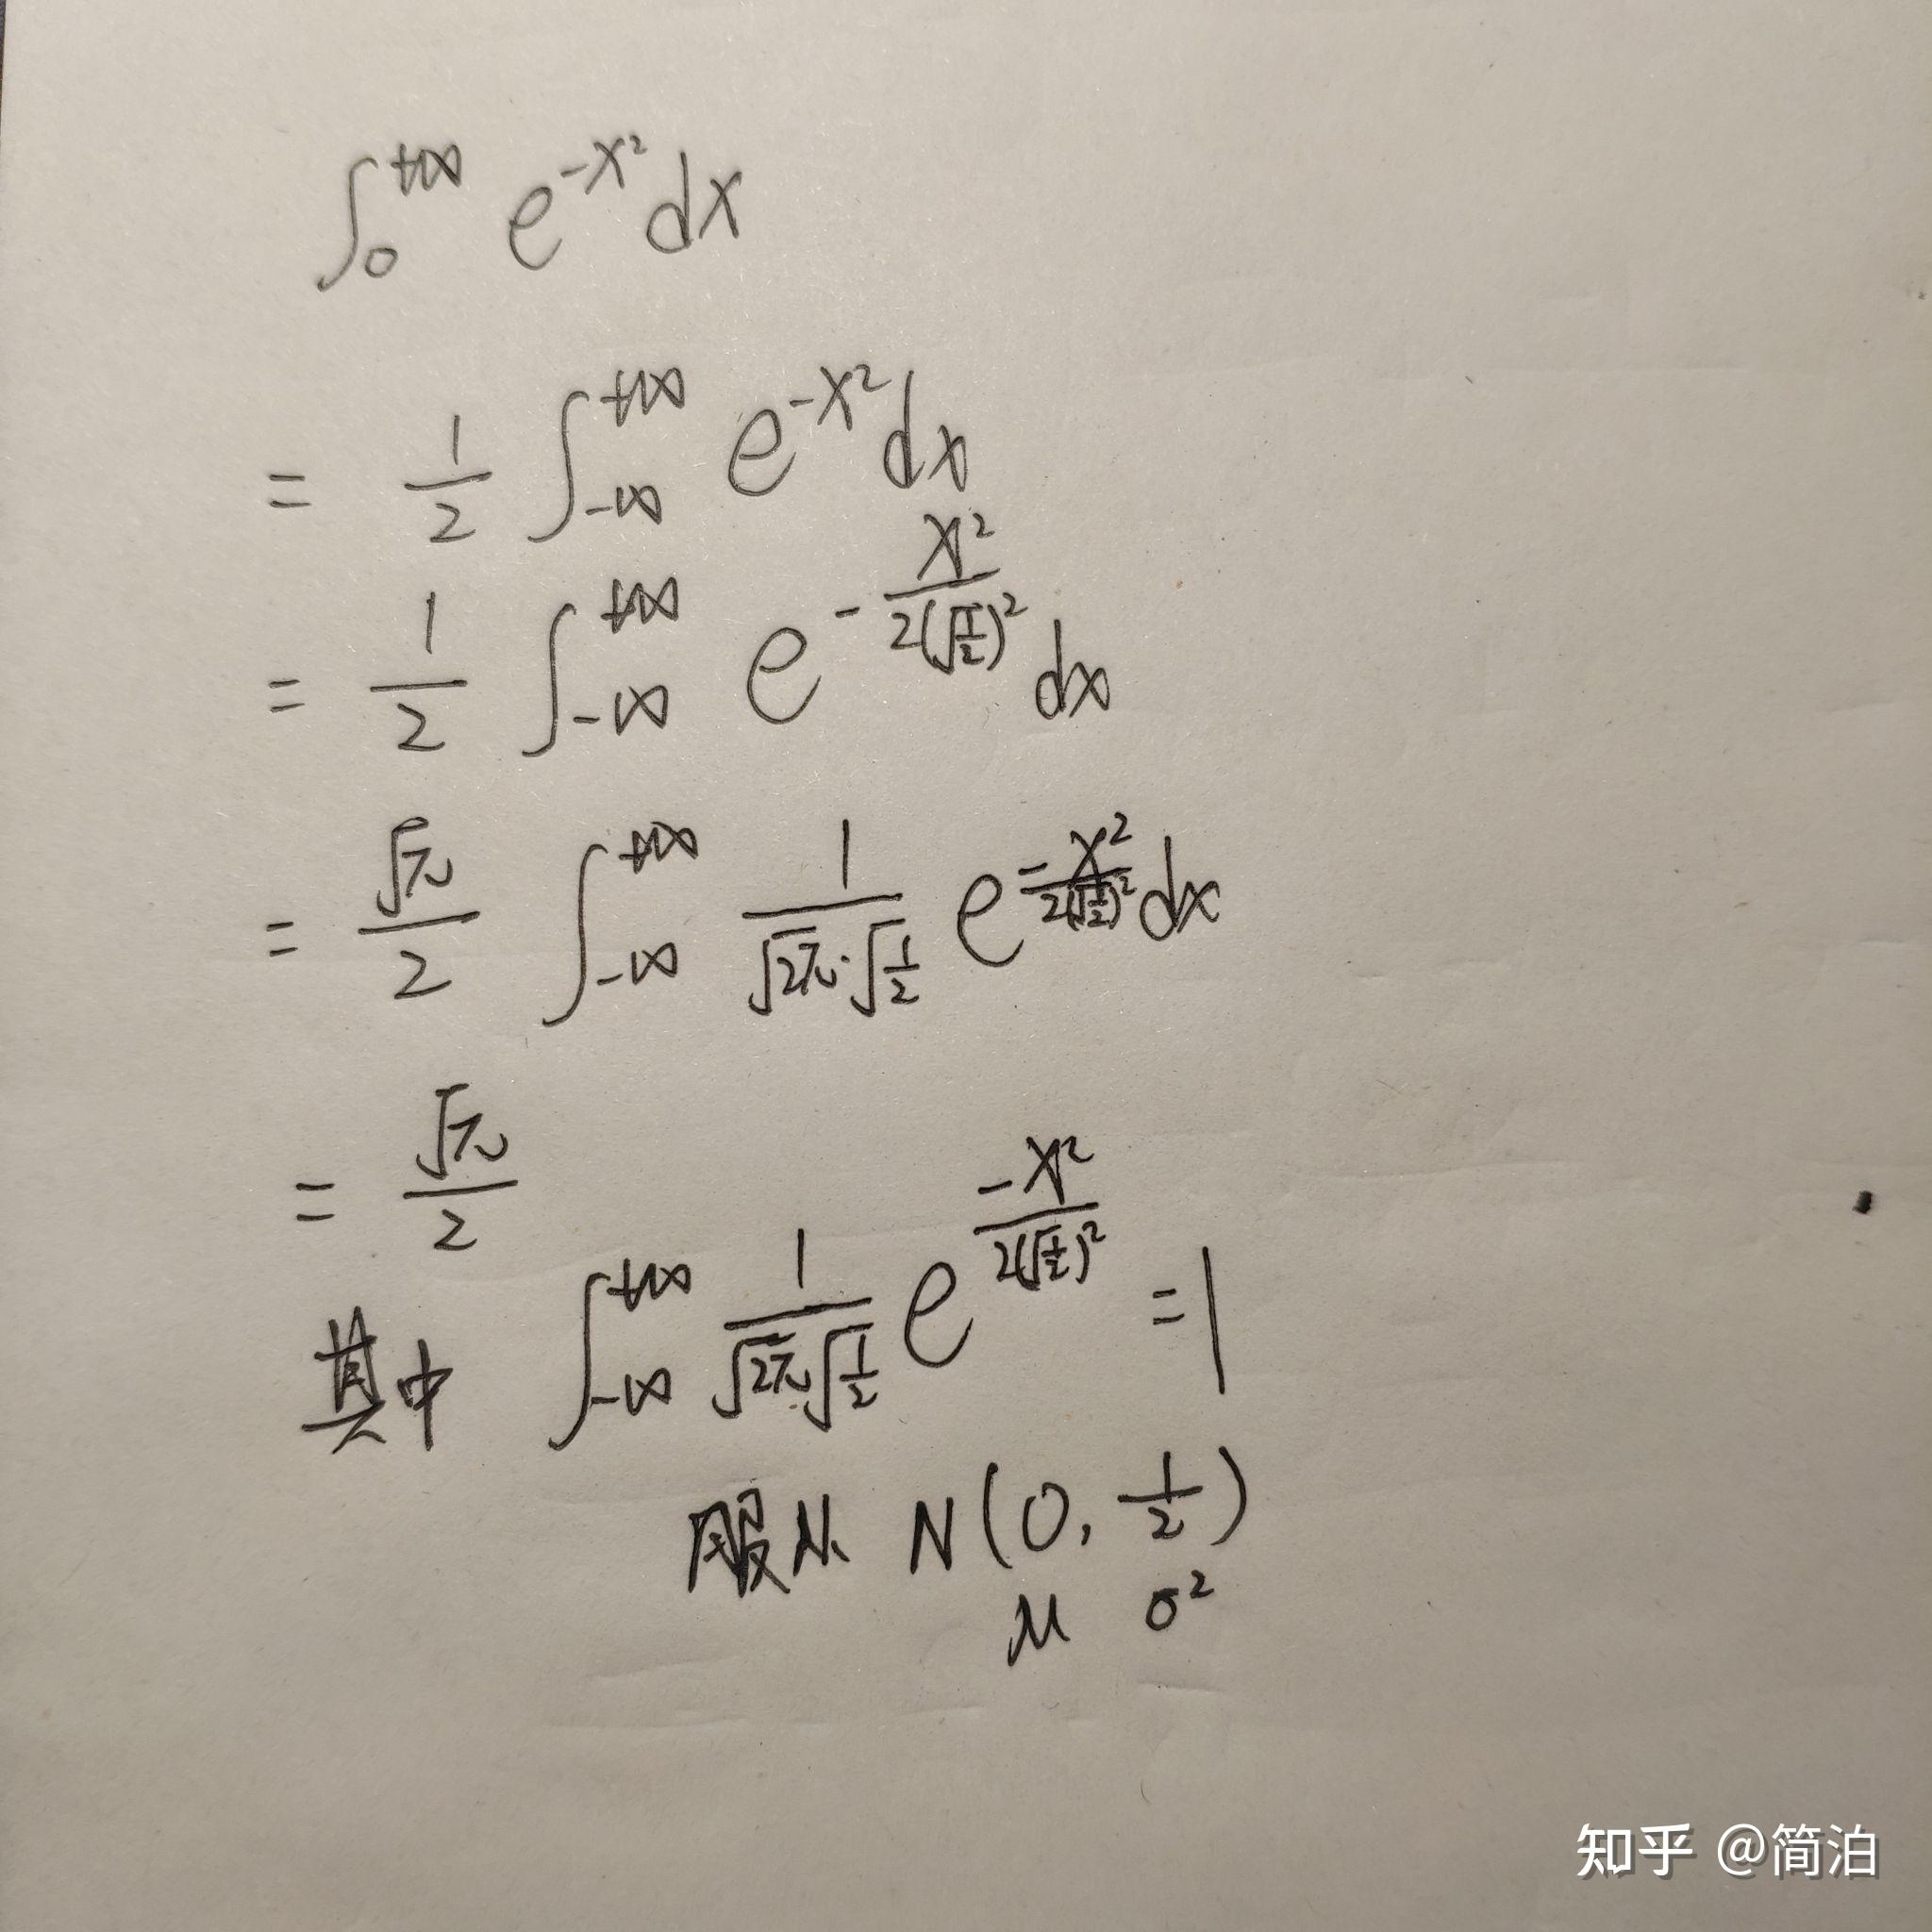 ∫₀^{+∞} e^{-x²} dx
= 1/2 ∫_{-∞}^{+∞} e^{-x²} dx
= 1/2 ∫_{-∞}^{+∞} e^{-x²/(2(√(1/2))²)} dx
= √π/2 ∫_{-∞}^{+∞} 1/(√(2π)·√(1/2)) e^{-x²/(2(√(1/2))²)} dx
= √π/2
其中 ∫_{-∞}^{+∞} 1/(√(2π)√(1/2)) e^{-x²/(2(√(1/2))²)} = 1
服从 N(0, 1/2)
μ σ²
知乎 @简泊